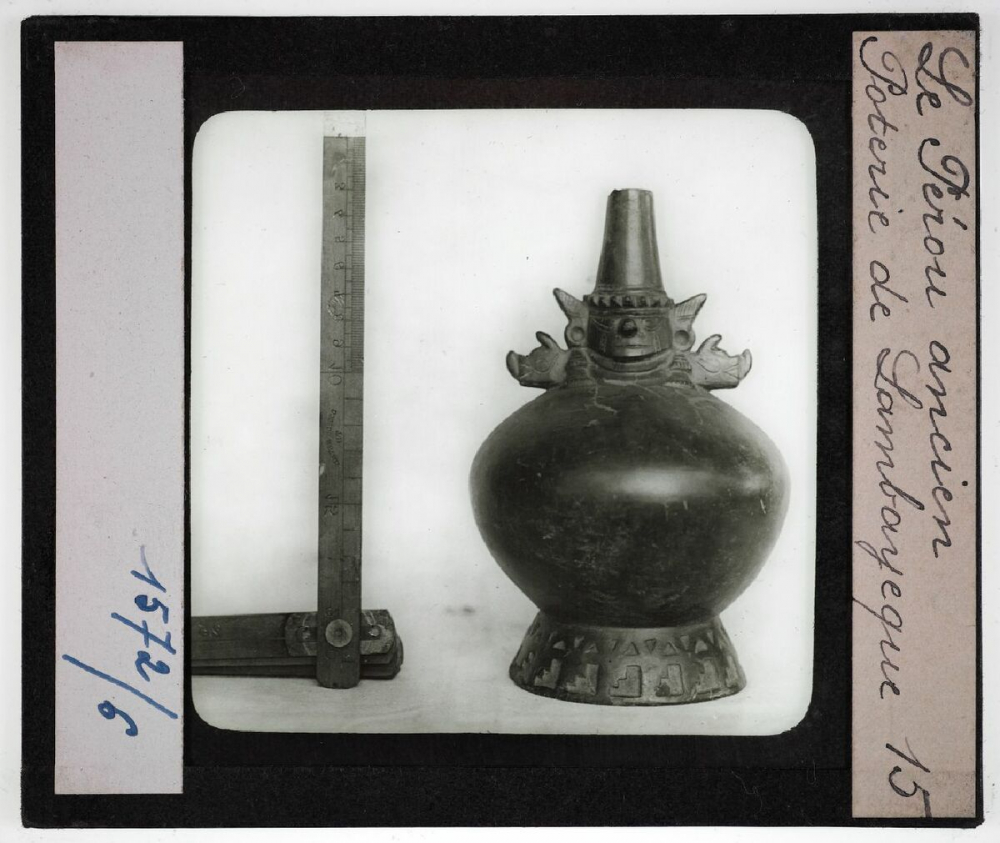 Le Pérou ancien
Poterie de Lambayeque 15
1572/6
10
15